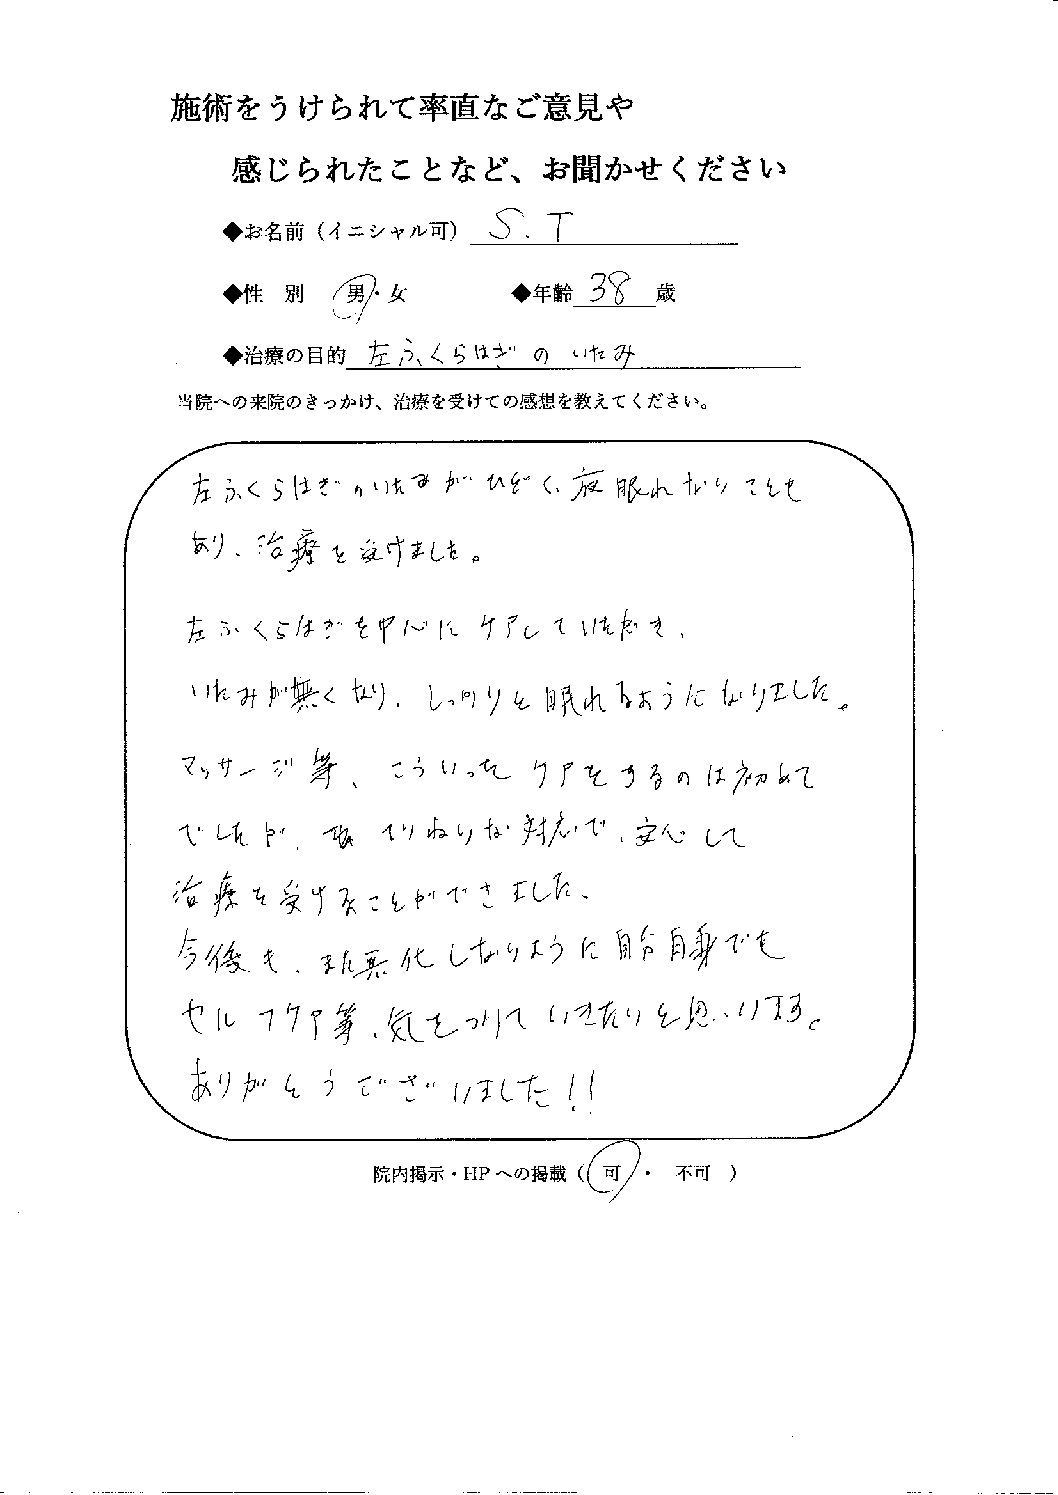 施術をうけられて率直なご意見や
感じられたことなど、お聞かせください
◆お名前（イニシャル可） S.T
◆性 別 男・女 ◆年齢 38 歳
◆治療の目的 左ふくらはぎのいたみ
当院への来院のきっかけ、治療を受けての感想を教えてください。
左ふくらはぎのいたみがひどく、夜眠れないことも
あり、治療を受けました。
左ふくらはぎを中心にケアしていただき、
いたみが無くなり、しっかりと眠れるようになりました。
マッサージ等、こういったケアをするのは初めて
でしたが、ていねいな対応で、安心して
治療を受けることができました、
今後も、また悪化しないように自分自身でも
セルフケア等、気をつけていきたいと思います。
ありがとうございました!!
院内掲示・HPへの掲載（ 可 ・ 不可 ）